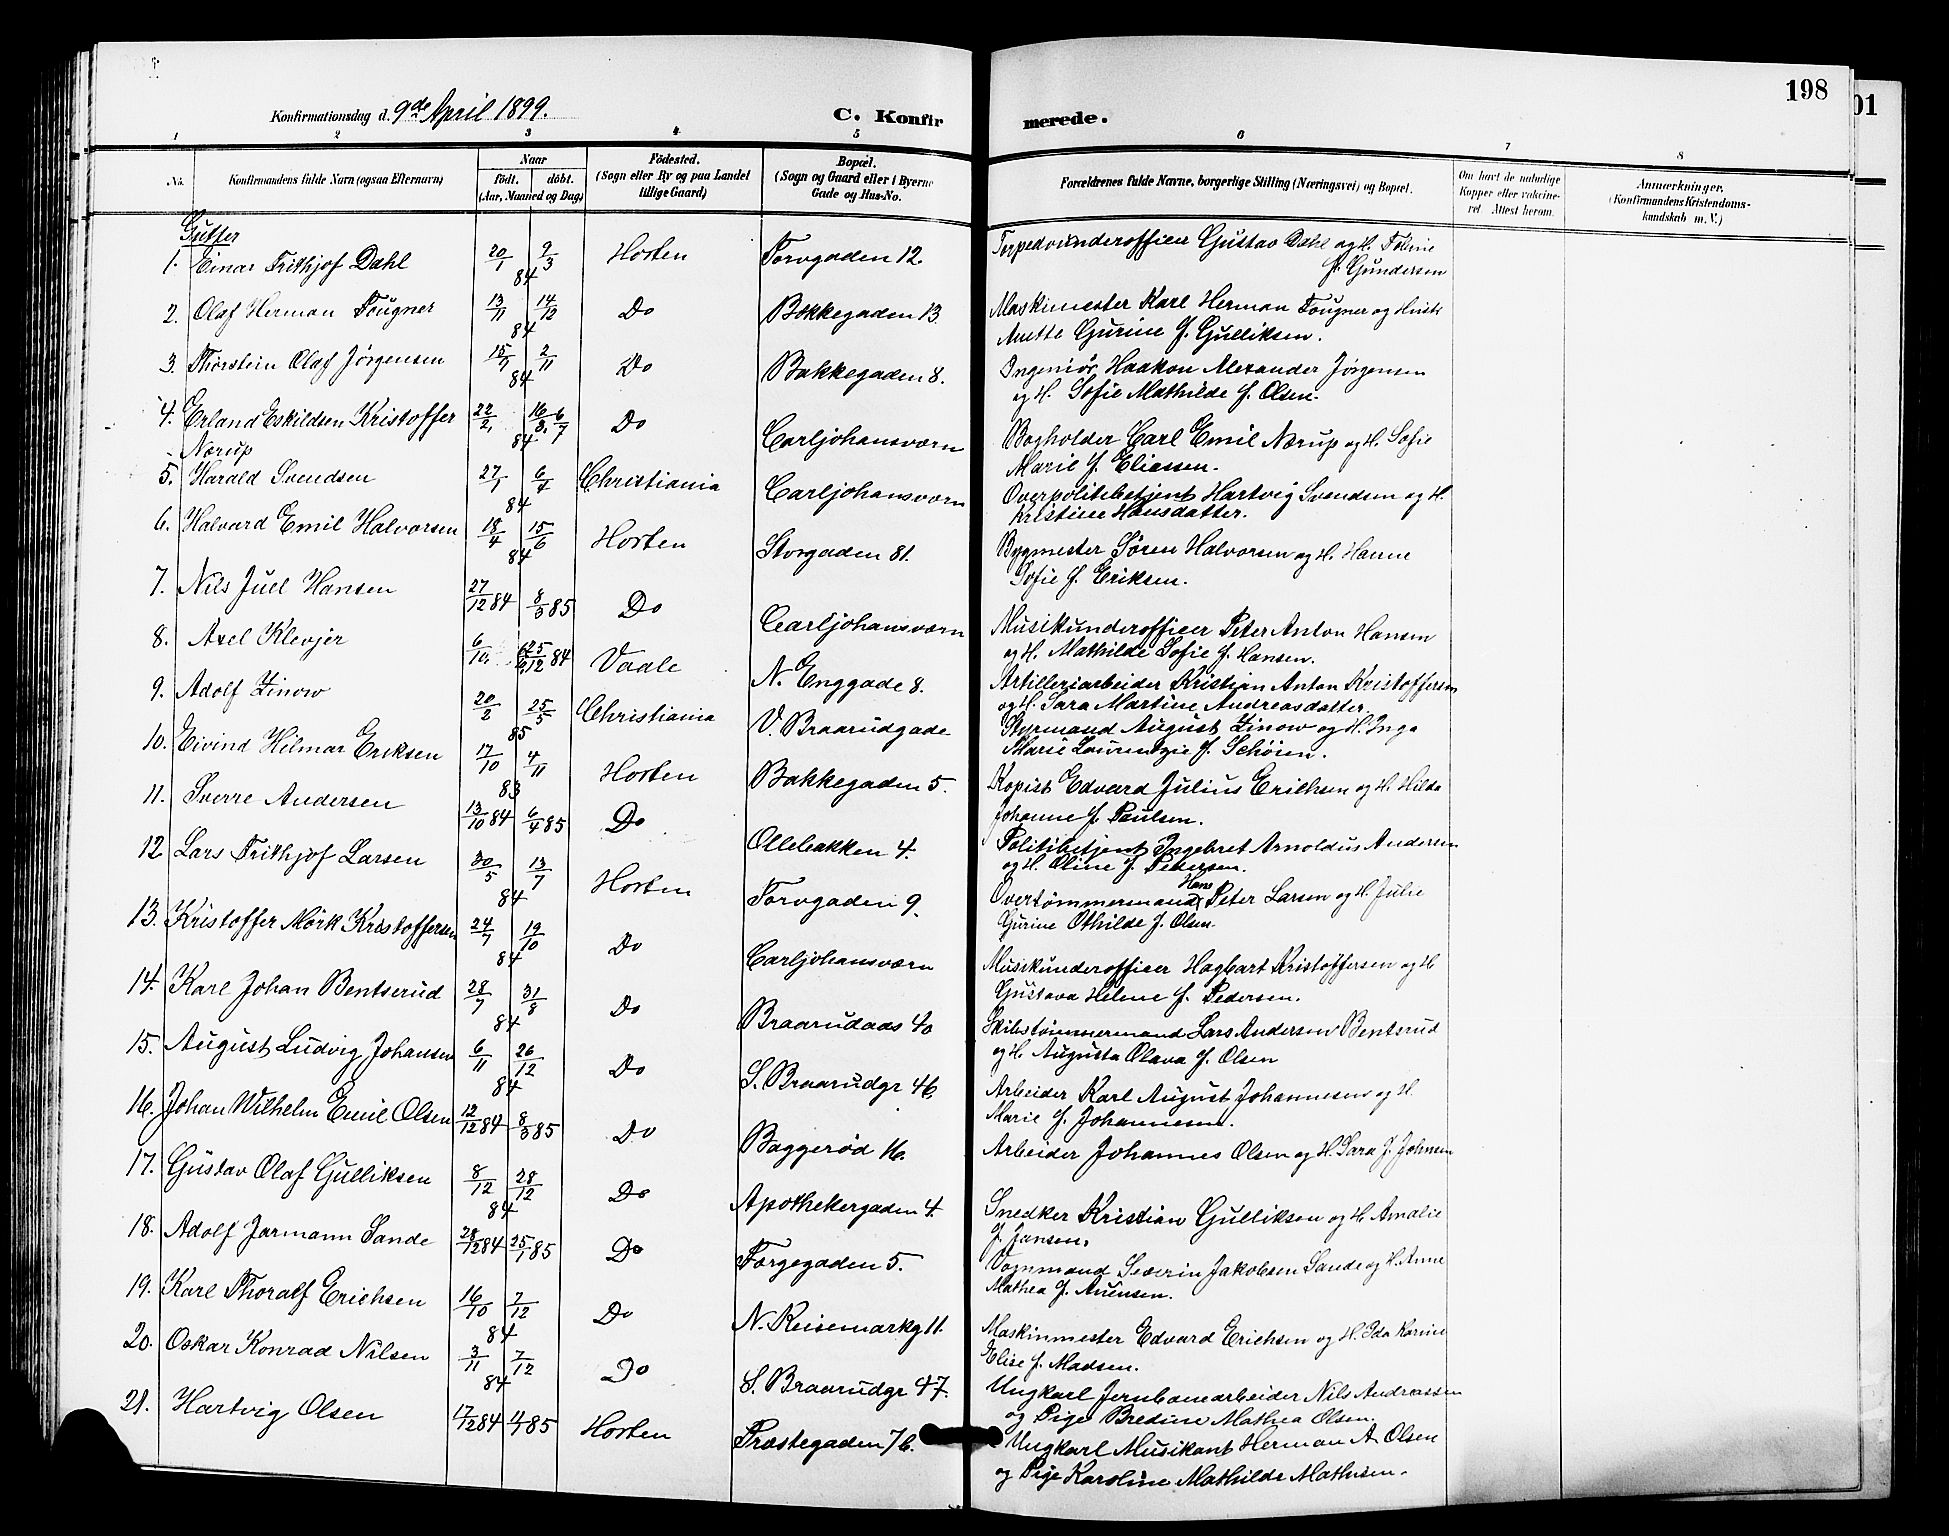 198
01
Konfirmationsdag d. 9de April 1899. C. Konfirmerede.
1 2 3 4 5 6 7 8
No. Konfirmandens fulde Navn (ogsaa Efternavn) Naar födt. döbt. (Aar, Maaned og Dag) Födested. (Sogn eller By og paa Landet tillige Gaard) Bopæl. (Sogn og Gaard eller i Byerne Gade og Hus-No. Forældrenes fulde Navne, borgerlige Stilling (Næringsvei) og Bopæl. Om havt de naturlige Kopper eller vakcineret. Attest herom. Anmærkninger. (Konfirmandens Kristendomskundskab m. V.)
Gutter
1. Einar Frithjof Dahl 20/1 9/3 84 Horten Torvgaden 12. Torpedounderofficer Gustav Dahl og H.
f. Gundersen
2. Olaf Herman Fougner 13/11 14/12 84 Do Bakkegaden 13. Maskinmester Karl Herman Fougner og Hustr
Anette Gurine f. Gulliksen.
3. Thorstein Olaf Jørgensen 15/9 2/11 84 Do Bakkegaden 8. Ingeniör Haakon Alexander Jørgensen
og H. Sofie Mathilde f. Olsen.
4. Erland Eskildsen Kristoffer 22/2. 16/3. 6/7 84 Do Carljohansværn Bogholder Carl Emil Nærup og H. Sofie
Nærup Marie f. Eliassen.
5. Harald Svendsen 27/1 6/4 84 Christiania Carljohansværn Overpolitibetjent Hartvig Svendsen og H.
Kristine Hansdatter.
6. Halvard Emil Halvorsen 18/4 15/6 84 Horten Storgaden 81. Bygmester Sören Halvorsen og H. Hanne
Sofie f. Eriksen.
7. Nils Juel Hansen 27/12 84 8/3 85 Do Carljohansværn Musikunderofficer Peter Anton Hansen
og H. Mathilde Sofie f. Hansen.
8. Axel Klevjer 6/10. 25/12 84 Vaale N. Enggade 8. Artilleriarbeider Kristian Anton Kristoffersen
og H. Sara Martine Andreasdatter.
9. Adolf Zinow 20/2 25/5 85 Christiania V. Braarudgade Styrmand August Zinow og H. Inga
Marie Laurentzie f. Schöien.
10. Eivind Hilmar Eriksen 17/10 4/11 83 Horten Bakkegaden 5. Kopist Edvard Julius Erichsen og H. Hilda
Johanne f. Paulsen.
11. Sverre Andersen 13/10 84 6/4 85 Do Ollebakken 4. Politibetjent Ingebret Arnoldus Andersen
og H. Oline f. Pedersen.
12 Lars Frithjof Larsen 30/5 13/7 84 Horten Torvgaden 9. Overtömmermand Hans Peter Larsen og H. Julie
Gurine Othilde f. Olsen.
13. Kristoffer Mörk Kristoffersen 24/7 19/10 84 Do Carljohansværn Musikunderofficer Hagbart Kristoffersen og H
Gustava Helene f. Pedersen.
14. Karl Johan Bentserud 28/7 31/8 84 Do Braarudaas 40 Skibstömmermand Lars Andersen Bentsrud
og H. Augusta Olava f. Olsen
15. August Ludvig Johansen 6/11 26/12 84 Do S. Braarudgr 46. Arbeider Karl August Johannesen og H.
Marie f. Johannesen.
16. Johan Wilhelm Emil Olsen 12/12 84 8/3 85 Do Baggerød 16. Arbeider Johannes Olsen og H. Sara f. Johnsen
17. Gustav Olaf Gulliksen 8/12 28/12 84 Do Apothekergaden 4. Snedker Kristian Gulliksen og H. Amalie
f. Jansen.
18. Adolf Jarmann Sande 28/12 84 25/1 85 Do Færgegaden 5. Vognmand Severin Jakobsen Sande og H. Anne
Mathea f. Auensen.
19. Karl Thoralf Erichsen 16/10 7/12 84 Do N. Keisemarkg 11. Maskinmester Edvard Erichsen og H. Ida Karine
Elise f. Madsen.
20. Oskar Konrad Nilsen 3/11 7/12 84 Do S. Braarudgr 47. Ungkarl Jernbanearbeider Nils Andreassen
og Pige Bredine Mathea Olsen.
21. Hartvig Olsen 17/12 84 85 Horten Præstegaden Ungkarl Musikant Herman A. Olsen
og Pige Karoline Mathilde Mathisen.